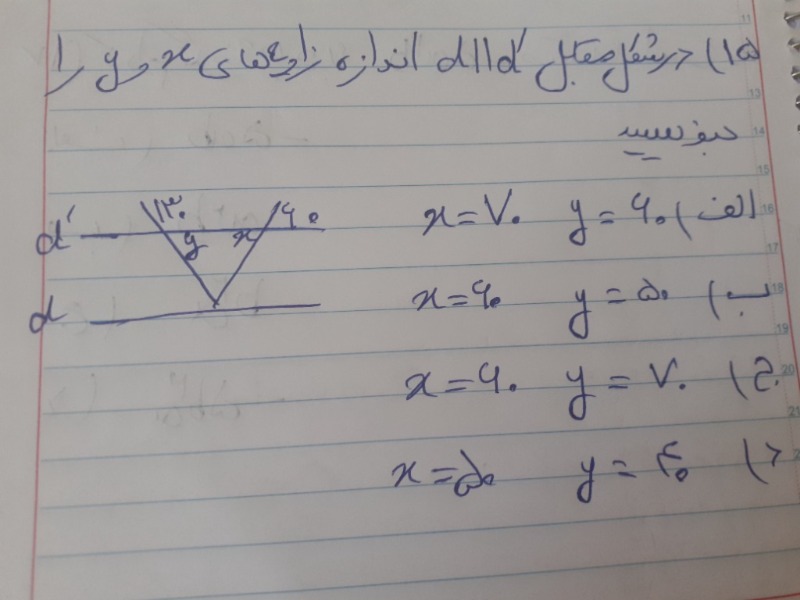 ۱۵) در شکل مقابل d||d′ اندازه زاویه‌های x و y را
بنویسید
الف) x=۷۰ y=۶۰
ب) x=۶۰ y=۵۰
ج) x=۶۰ y=۷۰
د) x=۵۰ y=۴۰
۱۳۰ ۶۰
d′ y x
d